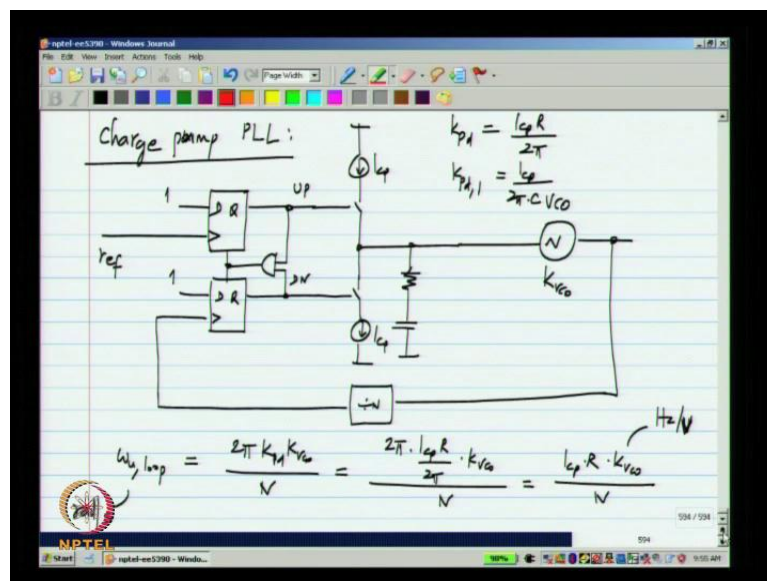 nptel-ee5390 - Windows Journal
File Edit View Insert Actions Tools Help
Page Width
B I
Charge pump PLL:
k_pd = I_cp R / 2π
k_pd,I = I_cp / 2π·C
VCO
UP
I_cp
1
D Q
ref
DN
1
D Q
I_cp
N
K_vco
÷N
Hz/V
ω_u,loop = 2π K_pd K_vco / N = 2π · I_cp R / 2π · K_vco / N = I_cp · R · K_vco / N
594 / 594
594
NPTEL
Start
nptel-ee5390 - Windo...
98%
9:55 AM